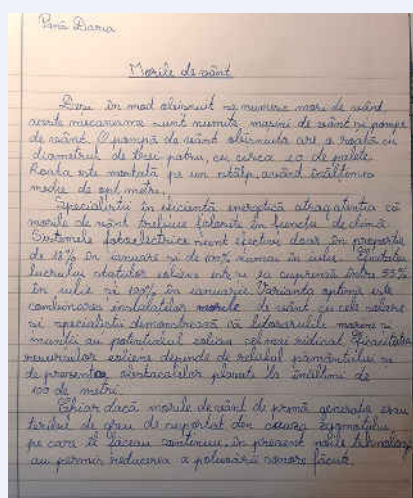 Pană Daria
Morile de vânt
Deși în mod obișnuit se numesc mori de vânt
aceste mecanisme sunt numite, mașini de vânt și pompe
de vânt. O pompă de vânt obișnuită are o roată cu
diametrul de trei patru, cu circa 20 de palete.
Roata este montată pe un stâlp, având înălțimea
medie de opt metri.
Specialiștii în eficiență energetică atrag atenția că
morile de vânt trebuie folosite în funcție de climă
Sistemele fotoelectrice sunt efective doar în proporție
de 18% în ianuarie și de 100% numai în iulie.
lucrului stațiilor eoliene este și ea cuprinsă între 55%
în iulie și 100% în ianuarie. Varianta optimă este
combinarea instalațiilor morile de vânt cu cele solare
și specialiștii demonstrează că litoralurile marine și
munții au potențialul eolian cel mai ridicat. Eficacitatea
resurselor eoliene depinde de relieful pământului și
de prezența obstacolelor plasate la înălțimi de
100 de metri.
Chiar dacă morile de vânt de primă generație erau
teribil de greu de suportat din cauza zgomotului
pe care îl făceau continuu, în prezent noile tehnologii
au permis reducerea a poluării sonore făcute.